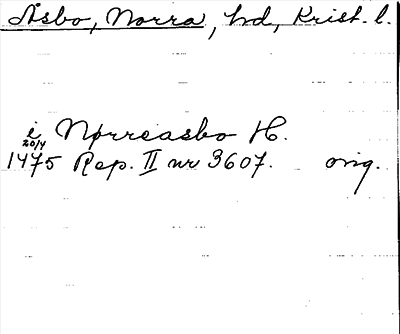 Åsbo, Norra, hd, Krist. l.
i Nørreasbo H.
20/4
1475 Rep. II nr 3607. orig.